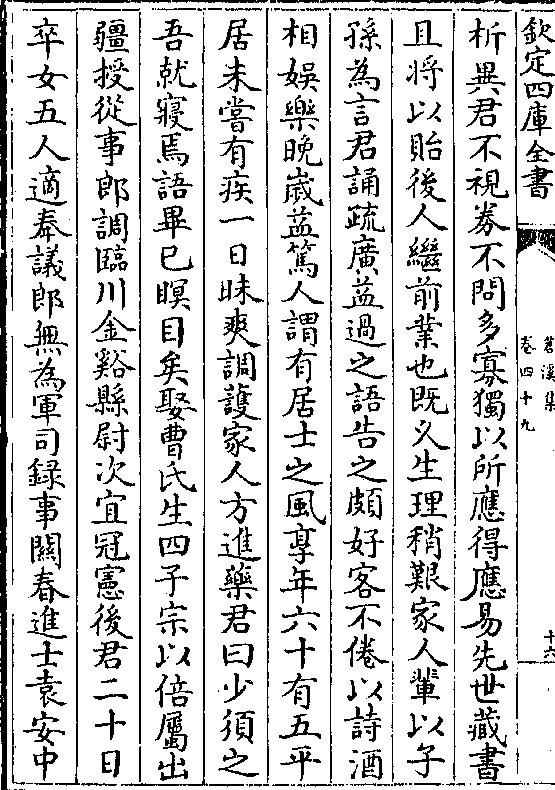 欽定四庫全書
苕溪集
卷四十九
十六
析異君不視券不問多寡獨以所應得應易先世藏書
且將以貽後人繼前業也既久生理稍艱家人輩以子
孫為言君誦疏廣益過之語告之頗好客不倦以詩酒
相娛樂晚歳益篤人謂有居士之風享年六十有五平
居未嘗有疾一日昧爽調護家人方進藥君曰少須之
吾就寢焉語畢已瞑目矣娶曹氏生四子宗以倍屬出
疆授從事郎調臨川金谿縣尉次宜冠憲後君二十日
卒女五人適奉議郎無為軍司録事闗春進士袁安中